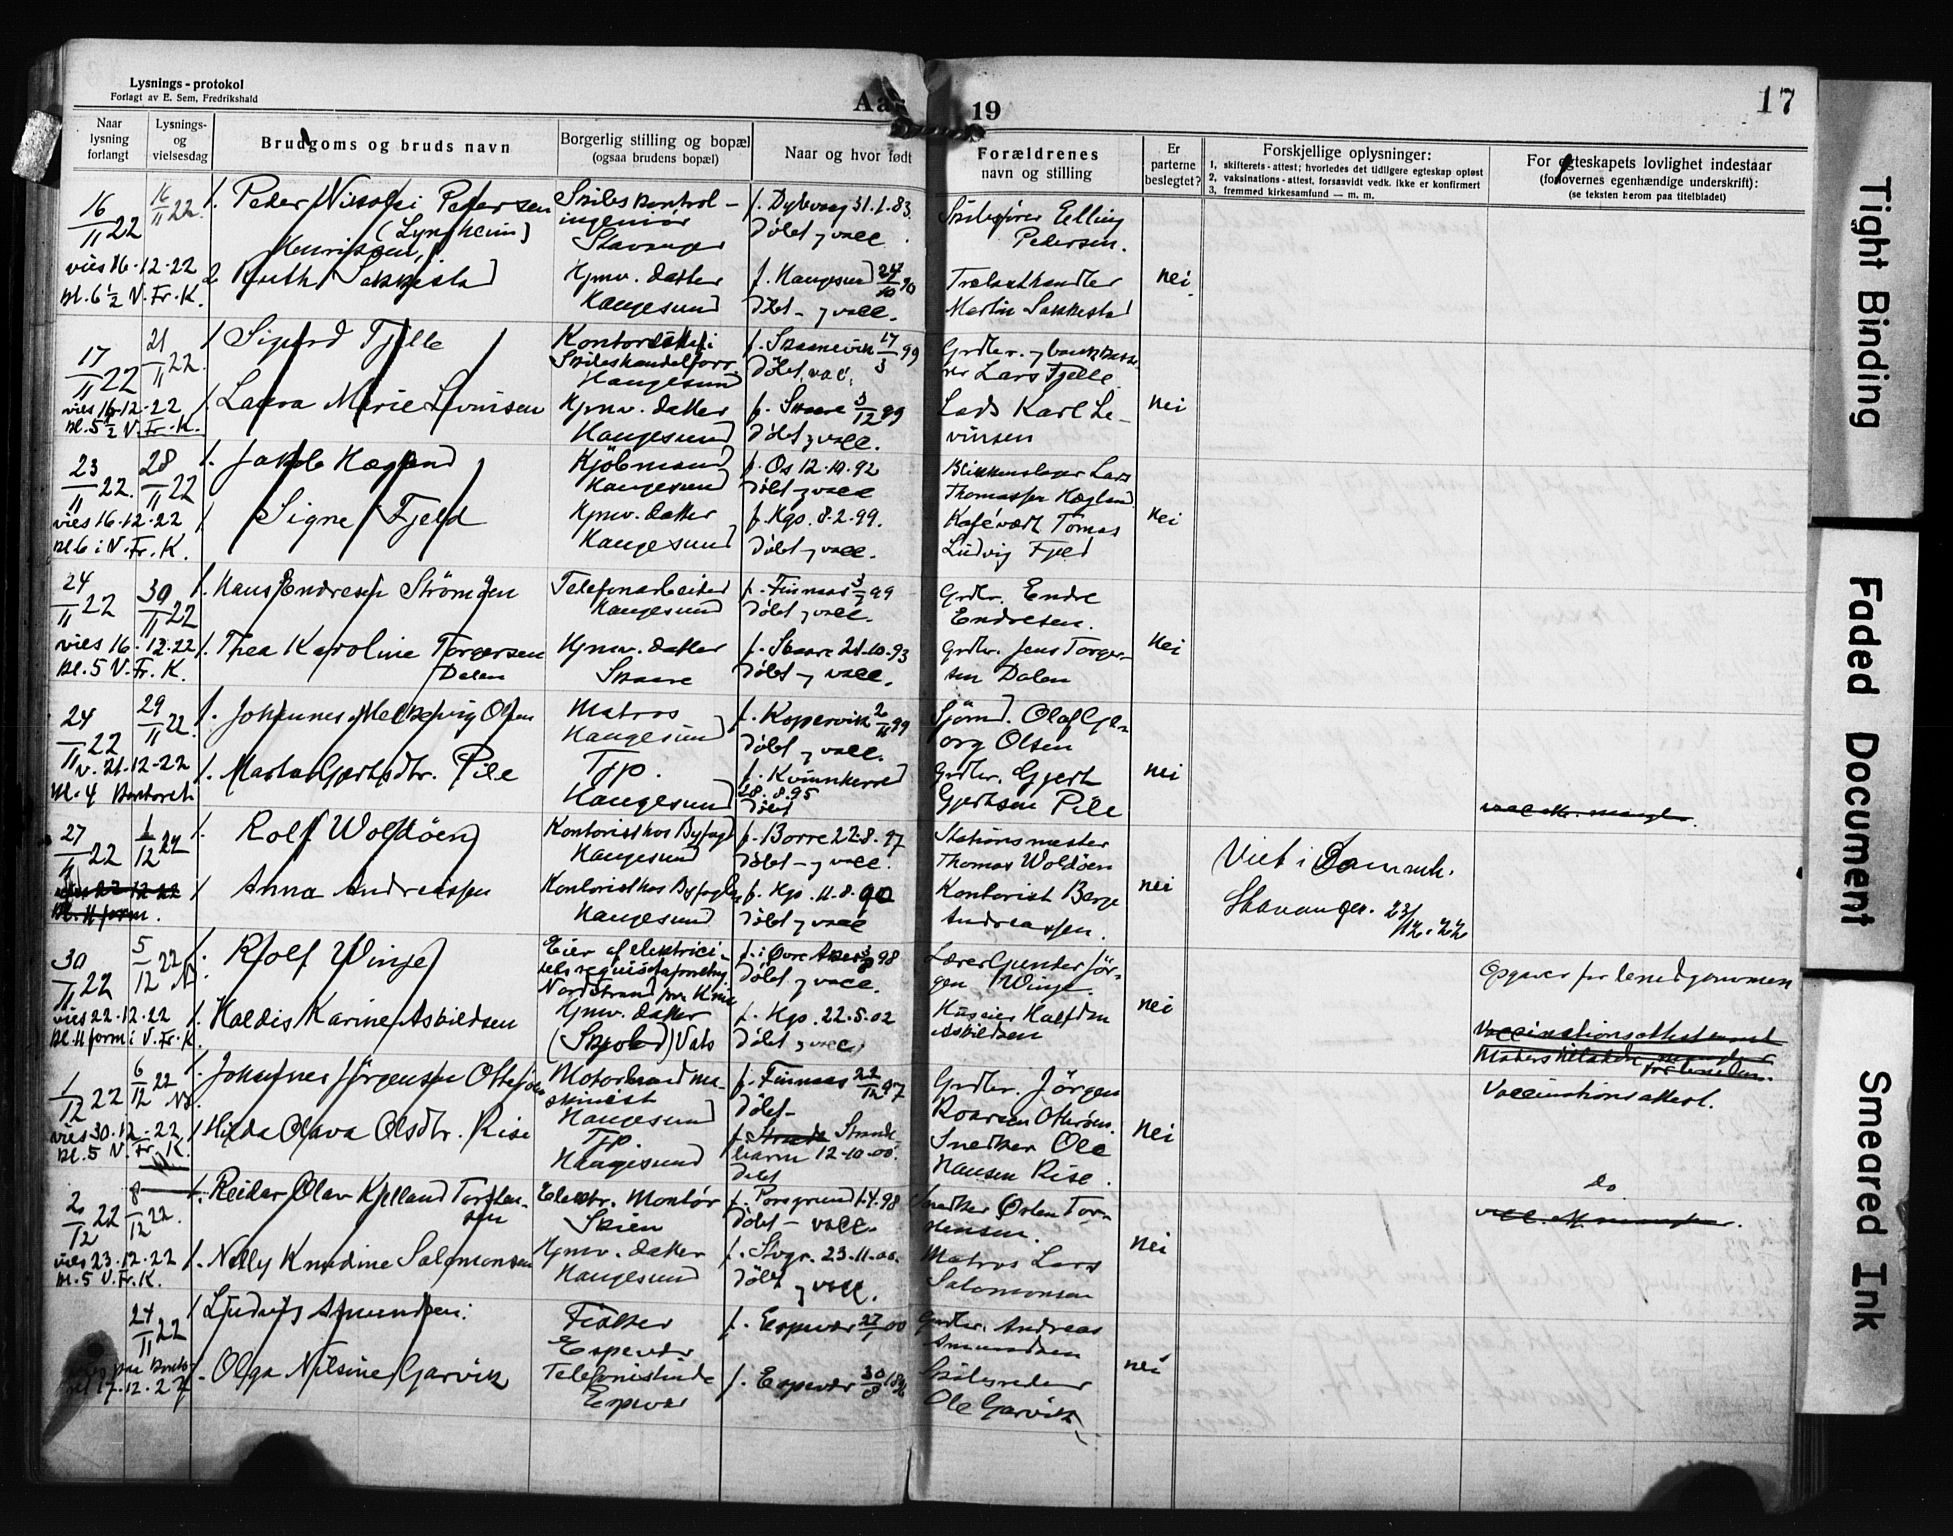 Lysnings-protokol
Forlagt av E. Sem, Fredrikshald
Aar 19
17
Naar lysning forlangt
Lysnings- og vielsesdag
Brudgoms og bruds navn
Borgerlig stilling og bopæl
(ogsaa brudens bopæl)
Naar og hvor født
Forældrenes navn og stilling
Er parterne beslegtet?
Forskjellige oplysninger:
1, skifterets-attest; hvorledes det tidligere egteskap opløst
2, vaksinations-attest, forsaavidt vedk. ikke er konfirmert
3, fremmed kirkesamfund — m. m.
For egteskapets lovlighet indestaar
(forlovernes egenhændige underskrift):
(se teksten herom paa titelbladet)
16/11 22 16/11 22. 1. Peder Pedersen
(Lyngheim)
Henriksen
Skibskontrol-
ingeniør
Stavanger
f. Dybvaag 31.1.83.
døbt og vacc.
Skibsfører Elling
Pedersen.
vies 16.12.22
kl. 6½ V. Fr. K.
2 Ruth Sakkestad
Hjmv. datter
Haugesund
f. Haugesund 24/10 90
døbt - og vacc.
Trælasthandler
Martin Sakkestad
nei
17/11 22 21/11 22. 1 Sigurd Fjelle
Haugesund
f. Skaanevik 17/3 99
døbt, vac.
Lars Fjelle
vies 16.12.22
kl. 5½ V. Fr. K.
1. Laura Marie Levinsen
Hjmv. datter
Haugesund
f. Skaare 3/12 99
døbt og vacc.
Lods Karl Le-
vinsen
nei
23/11 22. 28/11 22 1. Jakob Hægland
Kjøbmand
Haugesund
f. Os 12.10.92
døbt og vacc
Blikkenslager Lars
Thomassen Hægland
vies 16.12.22
kl. 6 i V. Fr. K.
1 Signe Fjeld
Hjmv. datter
Haugesund
f. Hgs. 8.2.99.
døbt og vacc.
Kafévært Tomas
Ludvig Fjeld
nei
24/11 22 30/11 22 1. Hans Endresen Strömöen
Telefonarbeider
Haugesund
f. Finnaas
døbt og vacc.
Grdbr. Endre
Endresen.
vies 16.12.22
kl. 5 V. Fr. K.
1. Thea Karoline Torgersen
Dalen
Hjmv. datter
Skaare
f. Skaare 21.10.93
døbt og vacc.
Grdbr. Jens Torger-
sen Dalen
nei
24/11 22 29/11 22. 1. Johannes Olsen
Matros
Haugesund
f. Kopervik
døbt og vacc.
Sjømd. Olaf Ge-
org Olsen
v. 21.12.22
kl. 4 Kontoret
1. Marta Gjertsdtr. Pile
Tjp.
Haugesund
f. Kvinnherred
28.8.95
døbt
Grdbr. Gjert
Gjertsen Pile
nei
27/11 22 1/12 22 1. Rolf Woldöen
Kontorist hos Byfogd
Haugesund
f. Borre 22.8.97
døbt - og vacc.
Stationsmester
Thomas Woldöen
Viet i
Stavanger. 23/12.22
1 Anna Andreassen
Kontorist hos Byfogden
Haugesund
f. Hgs. 11.8.90
døbt og vacc
Kontorist Berge
Andreassen.
nei
30/11 22 5/12 22 1. Rolf Winje
Eier af elektrici-
tets
Nordstrand
f. i Øvre Aker 98
døbt og vacc.
Lærer Gunder Jör-
gen Winje.
vies 22.12.22
kl. 11 form i V. Fr. K.
1. Haldis Karine Asbildsen
Hjmv. datter
(Skjold) Vats
f. Hgs. 22.5.02
døbt, vacc.
Halfdan
Asbildsen
nei
1/12 22 6/12 22 1. Johannes Jörgensen Ottesöen
Motormand ma-
skinist
Haugesund
f. Finnaas 22/12 97
døbt -
Grdbr. Jörgen
Vaccinationsattest.
vies 30.12.22
kl. 5 V. Fr. K.
1 Hilda Olava Olsdtr. Rise
Tjp.
Haugesund
f. Strande-
barm 12.10.00.
døbt
Snedker Ole
Hansen Rise.
nei
do
2/12 22 8/12 22. 1. Reidar Olav Kjelland Torsten-
sen
Elektr. Montör
Skien
f. Porsgrund 1.4.98
døbt - vacc.
Snedker Tor-
stensen.
vies 23.12.22
kl. 5 V. Fr. K.
1. Nelly Knudine Salomonsen
Hjmv. datter
Haugesund
f. Stvgr. 23.11.00.
døbt og vacc.
Matros Lars
Salomonsen
nei
24/11 22 1 Ludvig Amundsen.
Fisker
Espevær
f. Espevær 27/1 00
Grdbr. Andreas
Amundsen
17.12.22
1. Olga Nilsine Garvik
Telefonistinde
Espevær
f. Espevær 30/8
Skibsreder
Ole Garvik
nei
Tight Binding
Faded Document
Smeared Ink